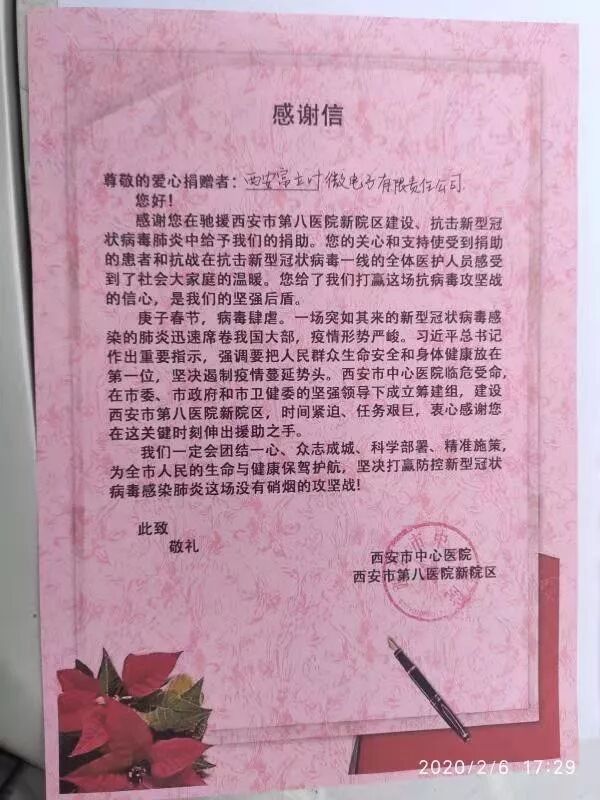 感谢信
尊敬的爱心捐赠者：西安富士叶微电子有限责任公司
您好！
感谢您在驰援西安市第八医院新院区建设、抗击新型冠
状病毒肺炎中给予我们的捐助。您的关心和支持使受到捐助
的患者和抗战在抗击新型冠状病毒一线的全体医护人员感受
到了社会大家庭的温暖。您给了我们打赢这场抗病毒攻坚战
的信心，是我们的坚强后盾。
庚子春节，病毒肆虐。一场突如其来的新型冠状病毒感
染的肺炎迅速席卷我国大部，疫情形势严峻。习近平总书记
作出重要指示，强调要把人民群众生命安全和身体健康放在
第一位，坚决遏制疫情蔓延势头。西安市中心医院临危受命，
在市委、市政府和市卫健委的坚强领导下成立筹建组，建设
西安市第八医院新院区，时间紧迫、任务艰巨，衷心感谢您
在这关键时刻伸出援助之手。
我们一定会团结一心、众志成城、科学部署、精准施策，
为全市人民的生命与健康保驾护航，坚决打赢防控新型冠状
病毒感染肺炎这场没有硝烟的攻坚战！
此致
敬礼
西安市中心医院
西安市第八医院新院区
2020/2/6 17:29